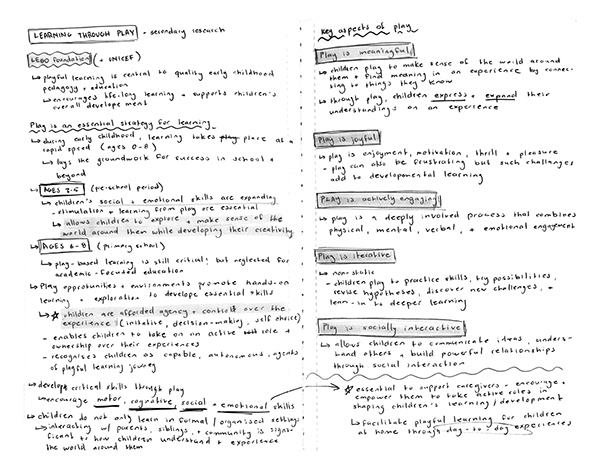 LEARNING THROUGH PLAY - secondary research
LEGO Foundation (+ UNICEF)
↳ playful learning is central to quality early childhood
pedagogy + education
↳ encourages life-long learning + supports children's
overall development
Play is an essential strategy for learning
↳ during early childhood, learning takes play place at a
rapid speed (ages 0-8)
↳ lays the groundwork for success in school +
beyond
↳ AGES 3-5 (pre-school period)
↳ children's social + emotional skills are expanding
- stimulation + learning from play are essential
↳ allows children to explore + make sense of the
world around them while developing their creativity
↳ AGES 6-8 (primary school)
↳ play-based learning is still critical, but neglected for
academic-focused education
↳ Play opportunities + environments promote hands-on
learning + exploration to develop essential skills
↳ ☆ children are afforded agency + control over the
experience (initiative, decision-making, self choice)
- enables children to take on an active role +
ownership over their experiences
- recognises children as capable, autonomous, agents
of playful learning journey
↳ develop critical skills through play
↳ encourage motor, cognitive, social + emotional skills
↳ children do not only learn in formal / organised settings
↳ interacting w/ parents, siblings, + community is signi-
ficant to how children understand + experience
the world around them
Key aspects of play
Play is meaningful
↳ children play to make sense of the world around
them + find meaning in an experience by connec-
ting to things they know
↳ through play, children express + expand their
understandings on an experience
Play is joyful
↳ play is enjoyment, motivation, thrill + pleasure
- play can also be frustrating but such challenges
add to developmental learning
PLAY is actively engaging
↳ play is a deeply involved process that combines
physical, mental, verbal, + emotional engagement
Play is iterative
↳ non-static
- children play to practice skills, try possibilities,
revise hypotheses, discover new challenges, +
lean-in to deeper learning
Play is socially interactive
↳ allows children to communicate ideas, under-
stand others + build powerful relationships
through social interaction
☆ essential to support caregivers - encourage +
empower them to take active roles in
shaping children's learning / development
↳ facilitate playful learning for children
at home through day-to-day experiences